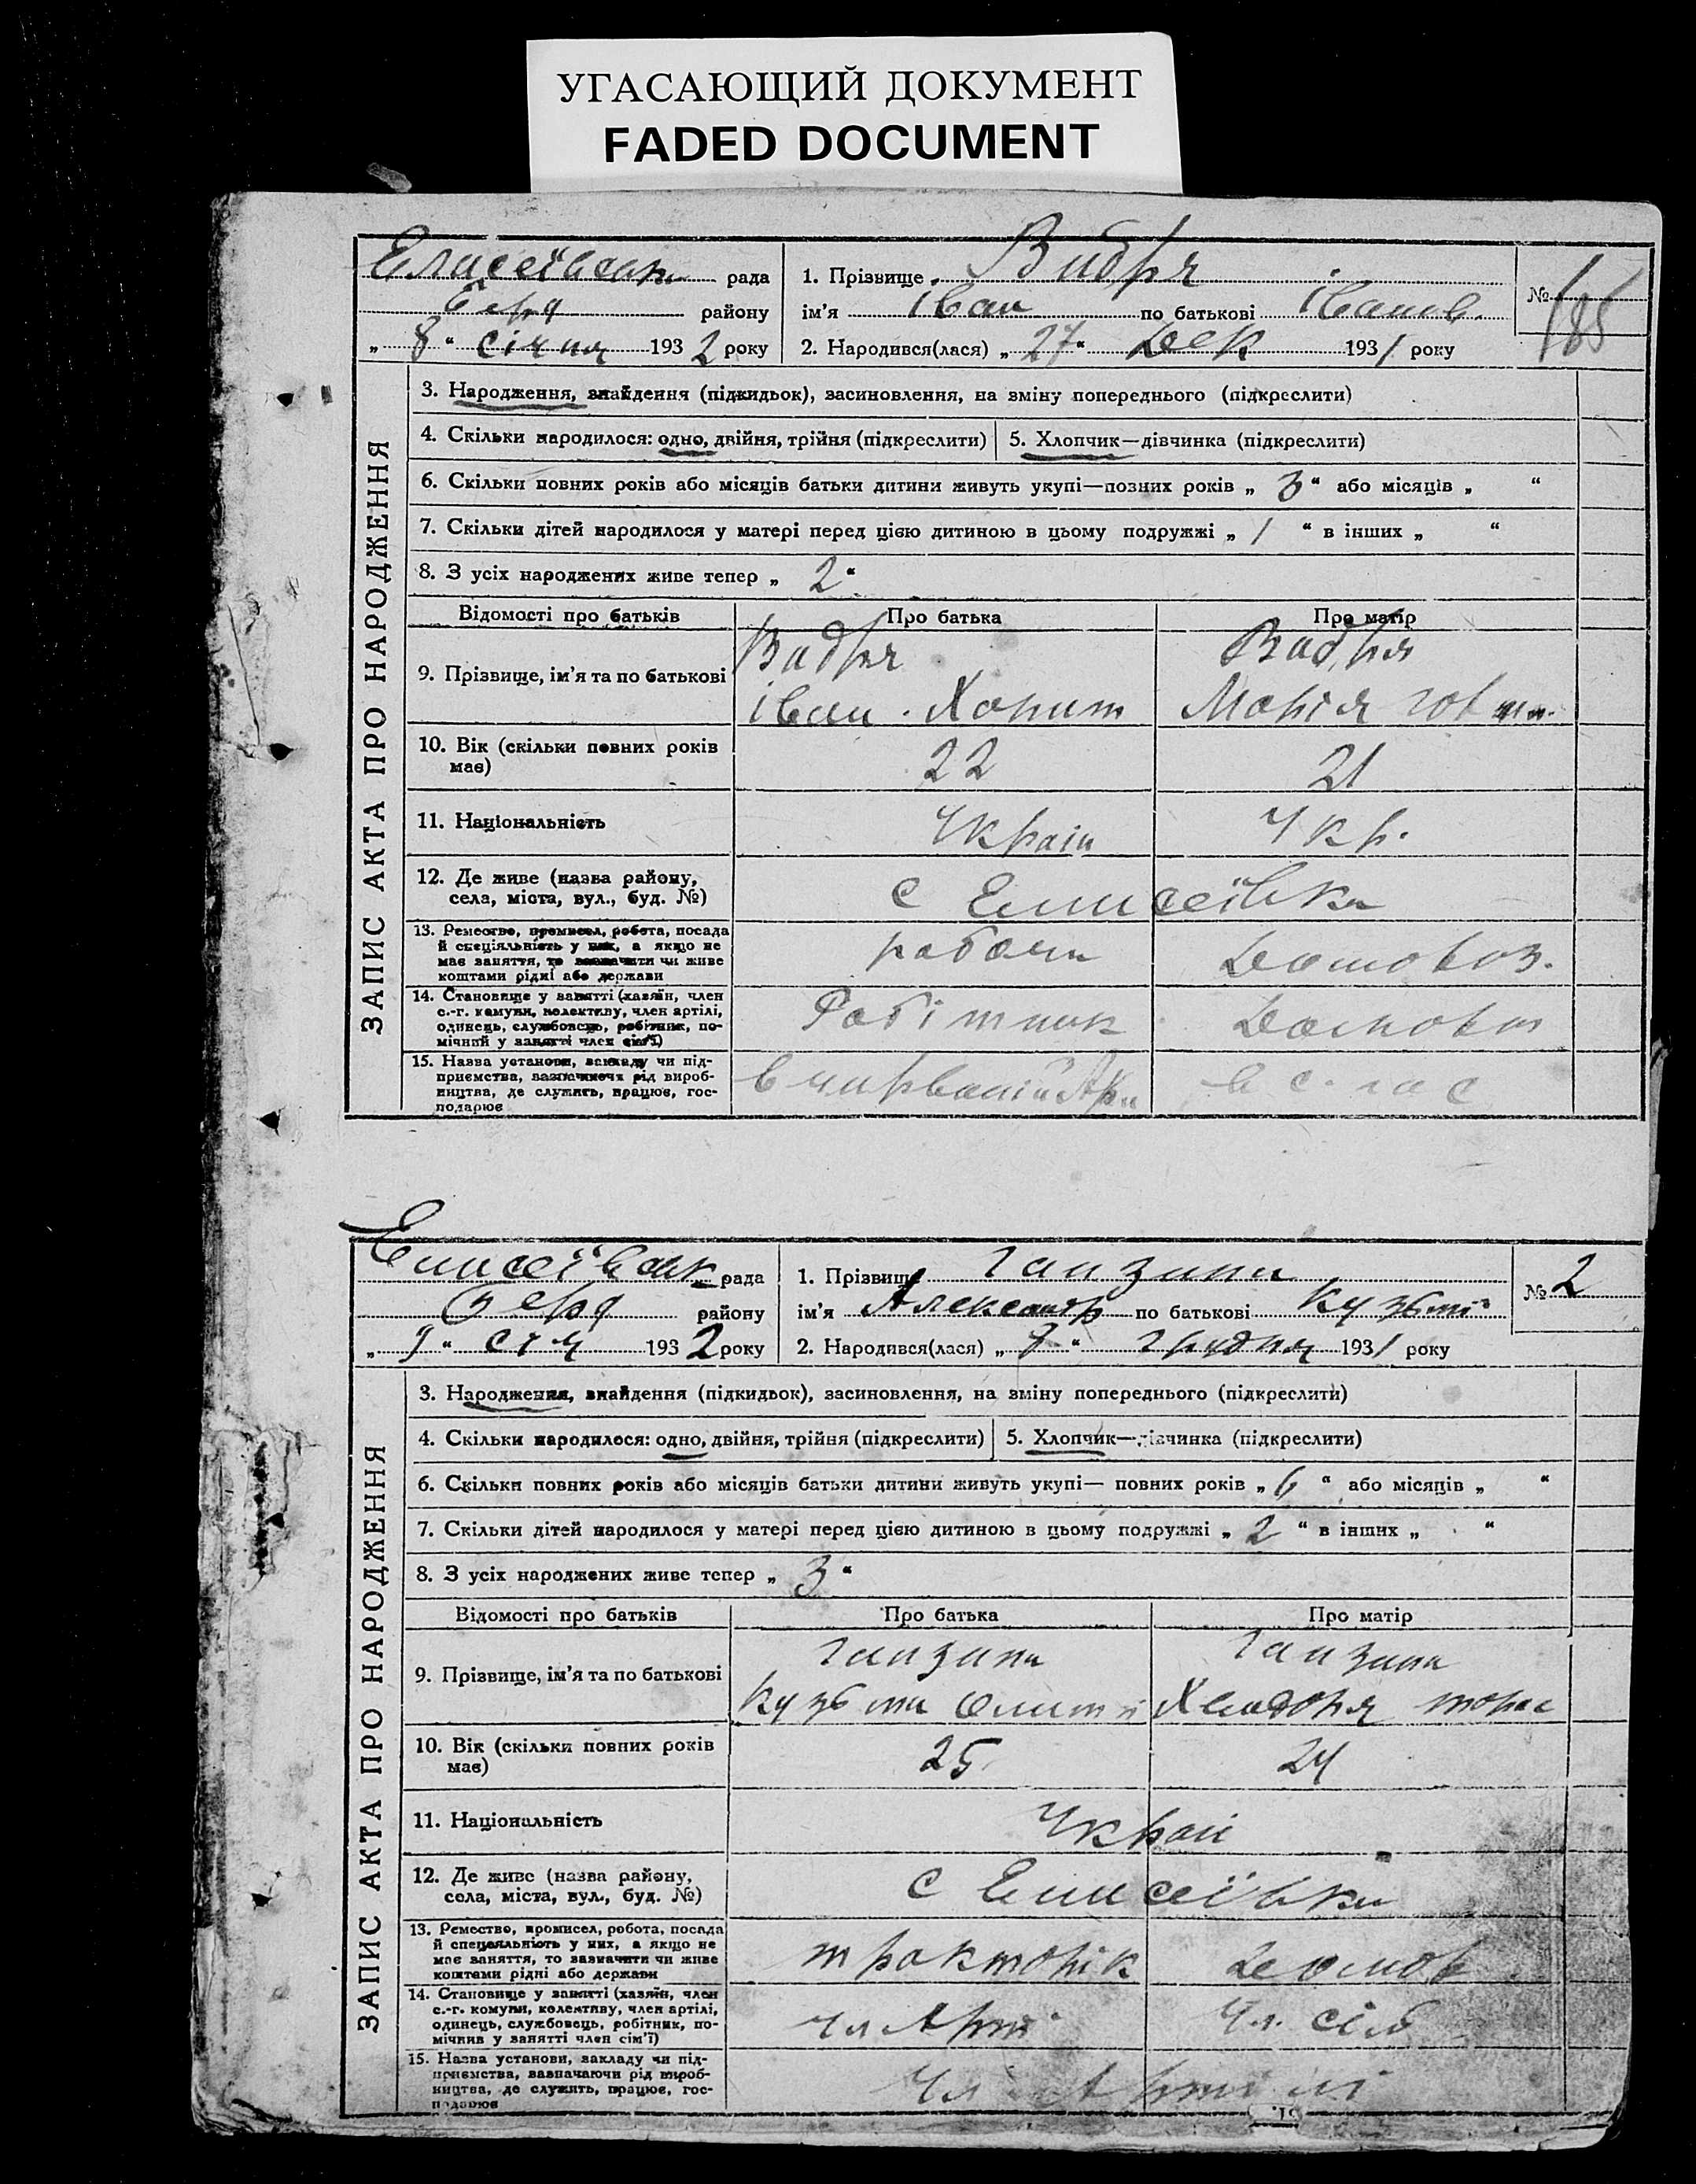 УГАСАЮЩИЙ ДОКУМЕНТ
FADED DOCUMENT
ЗАПИС АКТА ПРО НАРОДЖЕННЯ
рада
Берд району
„ 8 “ січня 1932 року
1. Прізвище Видря
ім'я Іван по батькові Іванов.
2. Народився(лася) „ 27 “ Дек 1931 року
№ 1
185
3. Народження, знайдення (підкидьок), засиновлення, на зміну попереднього (підкреслити)
4. Скільки народилося: одно, двійня, трійня (підкреслити)
5. Хлопчик—дівчинка (підкреслити)
6. Скільки повних років або місяців батьки дитини живуть укупі—повних років „ 3 “ або місяців „ “
7. Скільки дітей народилося у матері перед цією дитиною в цьому подружжі „ 1 “ в інших „ “
8. З усіх народжених живе тепер „ 2 “
Відомості про батьків
Про батька
Про матір
9. Прізвище, ім'я та по батькові
Видря
Іван Харит
Видря
Марія
10. Вік (скільки повних років
має)
22
21
11. Національність
Україн
Укр.
12. Де живе (назва району,
села, міста, вул., буд. №)
с Елисеївка
13. Ремество, промисел, робота, посада
й спеціяльність у них, а якщо не
має заняття, то зазначити чи живе
коштами рідні або держави
рабочи
Домовоз.
14. Становище у занятті (хазяїн, член
с.-г. комуни, колективу, член артілі,
одинець, службовець, робітник, по-
мічний у занятті член сім'ї)
Робітник
Домовоз
15. Назва установи, закладу чи під-
приємства, зазначаючи рід вироб-
ництва, де служить, працює, гос-
подарює
ЗАПИС АКТА ПРО НАРОДЖЕННЯ
Елисеївськ рада
Берд району
„ 9 “ січ 1932 року
1. Прізвище Ганзина
ім'я Александр по батькові Кузьмі
2. Народився(лася) „ 8 “ грудня 1931 року
№ 2
3. Народження, знайдення (підкидьок), засиновлення, на зміну попереднього (підкреслити)
4. Скільки народилося: одно, двійня, трійня (підкреслити)
5. Хлопчик—дівчинка (підкреслити)
6. Скільки повних років або місяців батьки дитини живуть укупі— повних років „ 6 “ або місяців „ “
7. Скільки дітей народилося у матері перед цією дитиною в цьому подружжі „ 2 “ в інших „ “
8. З усіх народжених живе тепер „ 3 “
Відомості про батьків
Про батька
Про матір
9. Прізвище, ім'я та по батькові
Ганзина
Кузьма
Ганзина
10. Вік (скільки повних років
має)
25
24
11. Національність
Украі
12. Де живе (назва району,
села, міста, вул., буд. №)
с Елисеївка
13. Ремество, промисел, робота, посада
й спеціяльність у них, а якщо не
має заняття, то зазначити чи живе
коштами рідні або держави
тракторік
Домов
14. Становище у занятті (хазяїн, член
с.-г. комуни, колективу, член артілі,
одинець, службовець, робітник, по-
мічник у занятті член сім'ї)
чл Арті
чл. сім
15. Назва установи, закладу чи під-
приємства, зазначаючи рід вироб-
ництва, де служить, працює, гос-
подарює
чл Артілі